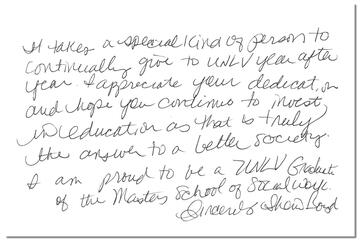 It takes a special kind of person to
continually give to UNLV year after
year. I appreciate your dedication
and hope you continue to invest
in education as that is truly
the answer to a better society.
I am proud to be a UNLV Graduate
of the Masters School of Social Work.
Sincerely,